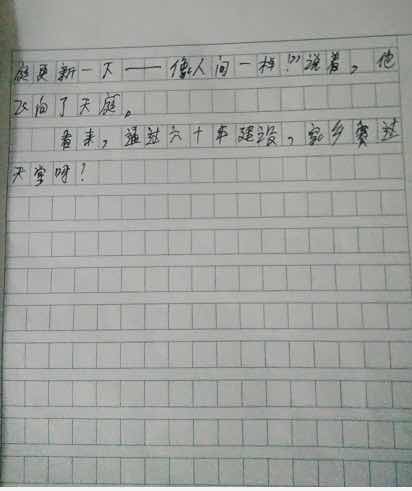 庭更新一下——像人间一样!”说着，他
飞向了天庭。
看来，通过六十年建设，家乡赛过
天堂呀！